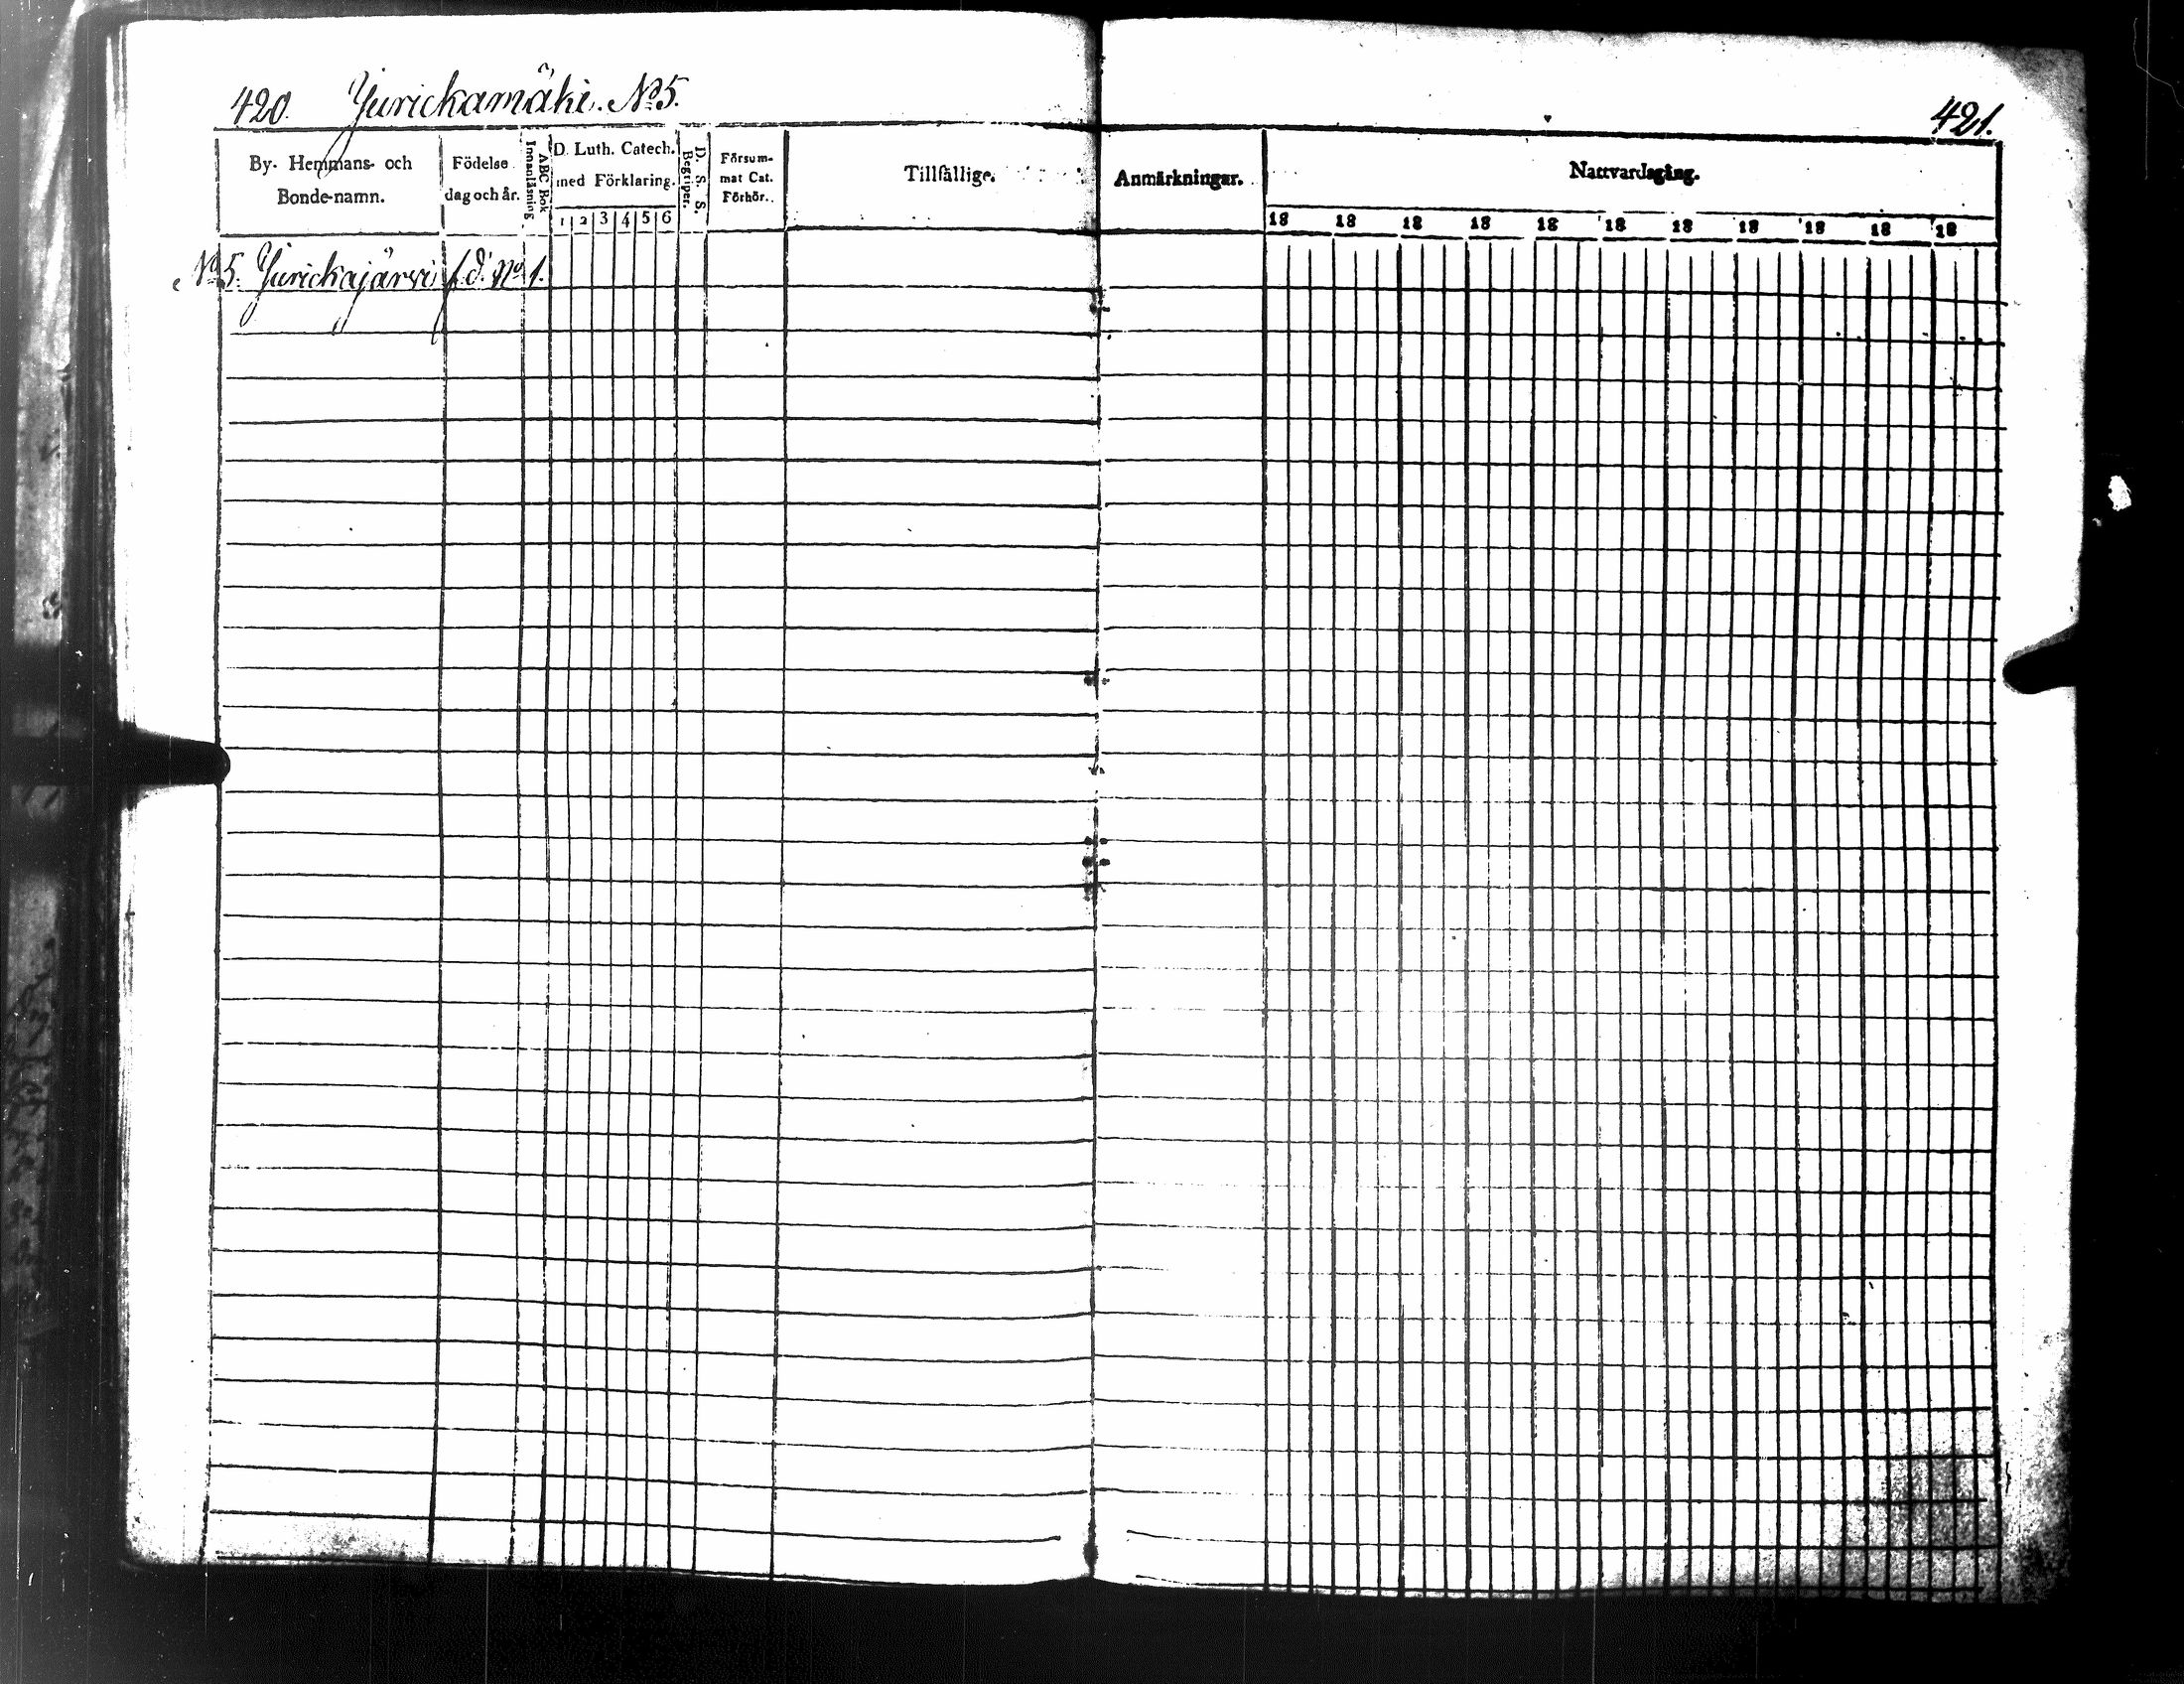 420. Jurickamäki. No 5.
421.
By- Hemmans- och
Bonde-namn.
Födelse
dag och år.
ABC Bok
Innanläsning
D. Luth. Catech.
med Förklaring.
1 2 3 4 5 6
D. S. S.
Begriper.
Försum-
mat Cat.
Förhör.
Tillfällige.
Anmärkningar.
Nattvardsgång.
18 18 18 18 18 18 18 18 18 18 18
No 5. Jurickajärvi f.d. No 1.